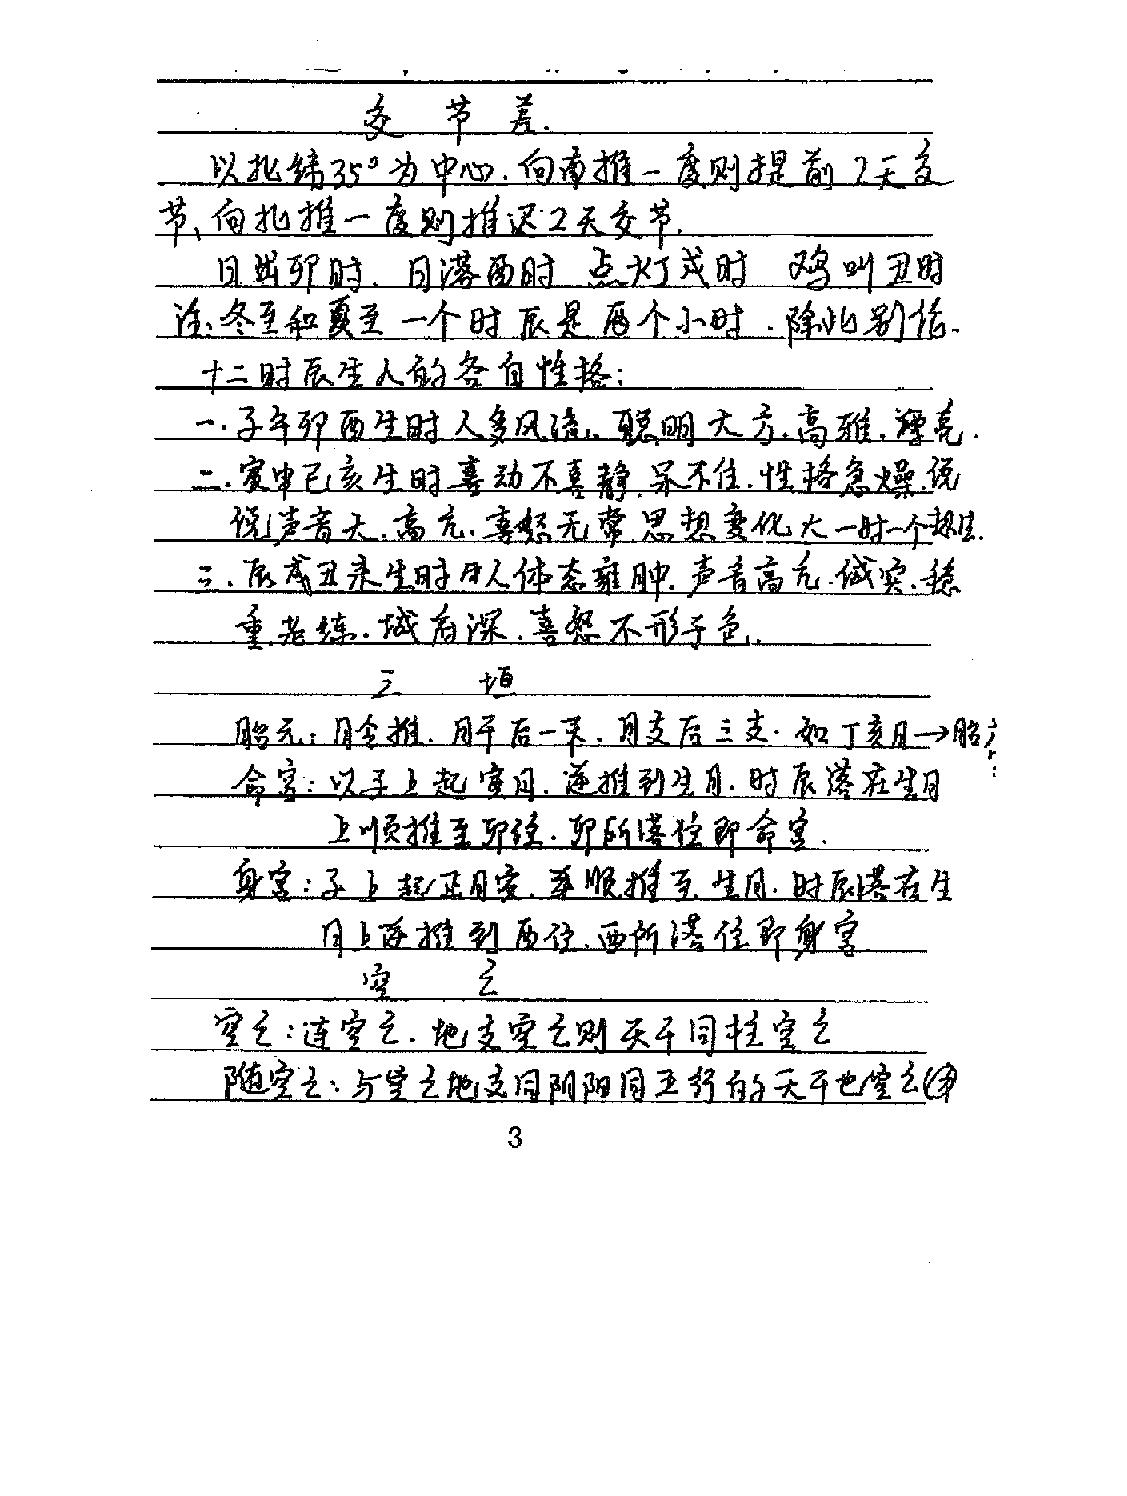 交 节 差.
以北纬35°为中心.向南推一度则提前2天交
节、向北推一度则推迟2天交节.
日出卯时. 日落酉时 点灯戌时 鸡叫丑时
注:冬至和夏至一个时辰是两个小时.除此别估.
十二时辰生人的各自性格:
一.子午卯酉生时人多风流.聪明大方.高雅.漂亮.
二.寅申巳亥生时喜动不喜静.呆不住.性格急燥.说
说声音大.高亢.喜怒无常思想变化大一时一个想法.
三.辰戌丑未生时 人体态雍肿.声音高亢.诚实.稳
重.老练.城府深.喜怒不形于色.
三 垣
胎元:月令推.月干后一天.月支后三支.如丁亥月→胎
命宫:以子上起寅月.逆推到生月.时辰落在生月
上顺推至卯位.卯所落位即命宫.
身宫:子上起正月寅. 顺推至生月.时辰落在生
月上逆推到酉位.酉所落位即身宫
空 亡
空亡:连空亡.地支空亡则天干同柱空亡
随空亡:与空亡地支同阴阳同五行的天干也空亡(甲
3